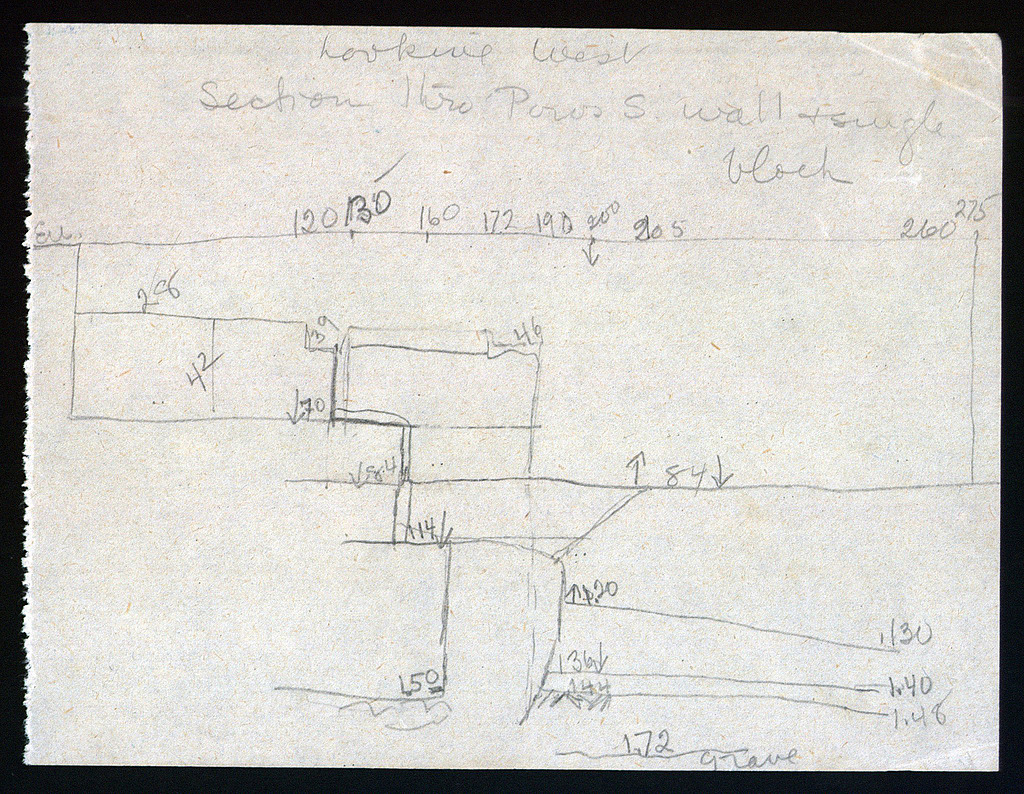 Looking West
Section thro Poros S. wall + single
block
120 130 160 172 190 200 205 260 275
28
39 46
42
70
84 84
114
1.20
.130
150 136
144 1.40
1.48
1.72 grave